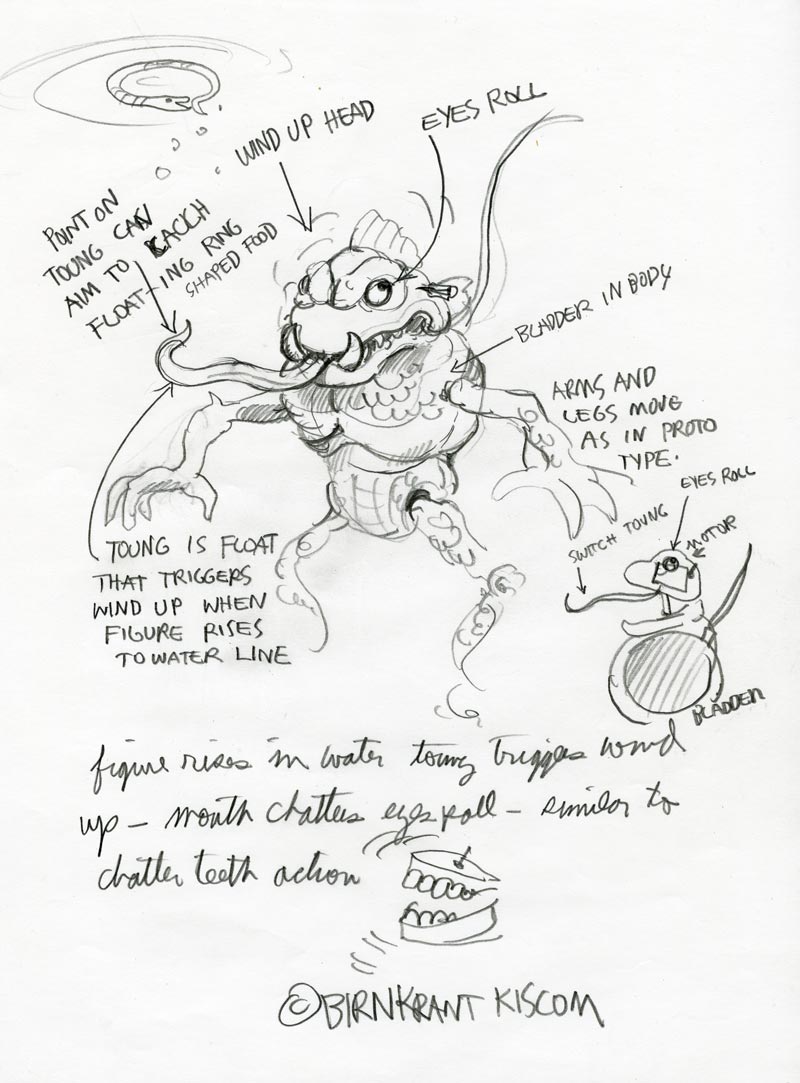 WIND UP HEAD
EYES ROLL
POINT ON
TOUNG CAN
AIM TO CACCH
FLOAT-ING RING
SHAPED FOOD
BLADDER IN BODY
ARMS AND
LEGS MOVE
AS IN PROTO
TYPE.
EYES ROLL
SWITCH TOUNG
MOTOR
BLADDER
TOUNG IS FLOAT
THAT TRIGGERS
WIND UP WHEN
FIGURE RISES
TO WATER LINE
figure rises in water toung triggers wind
up - mouth chatters eyes roll - similar to
chatter teeth action
© BIRNKRANT KISCOM